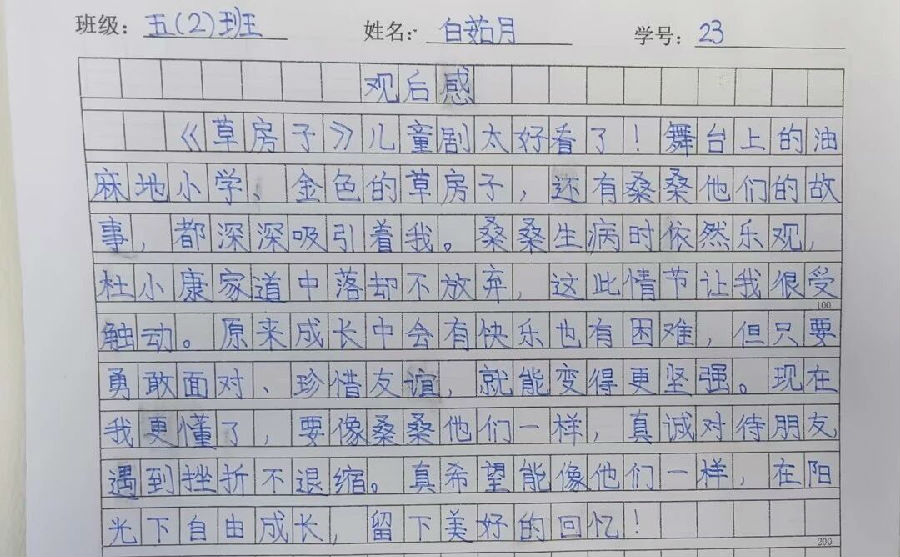 班级：五（2）班 姓名：白茹月 学号：23
观后感
《草房子》儿童剧太好看了！舞台上的油
麻地小学、金色的草房子，还有桑桑他们的故
事，都深深吸引着我。桑桑生病时依然乐观，
杜小康家道中落却不放弃，这些情节让我很受
100
触动。原来成长中会有快乐也有困难，但只要
勇敢面对、珍惜友谊，就能变得更坚强。现在
我更懂了，要像桑桑他们一样，真诚对待朋友
遇到挫折不退缩。真希望能像他们一样，在阳
光下自由成长，留下美好的回忆！
200